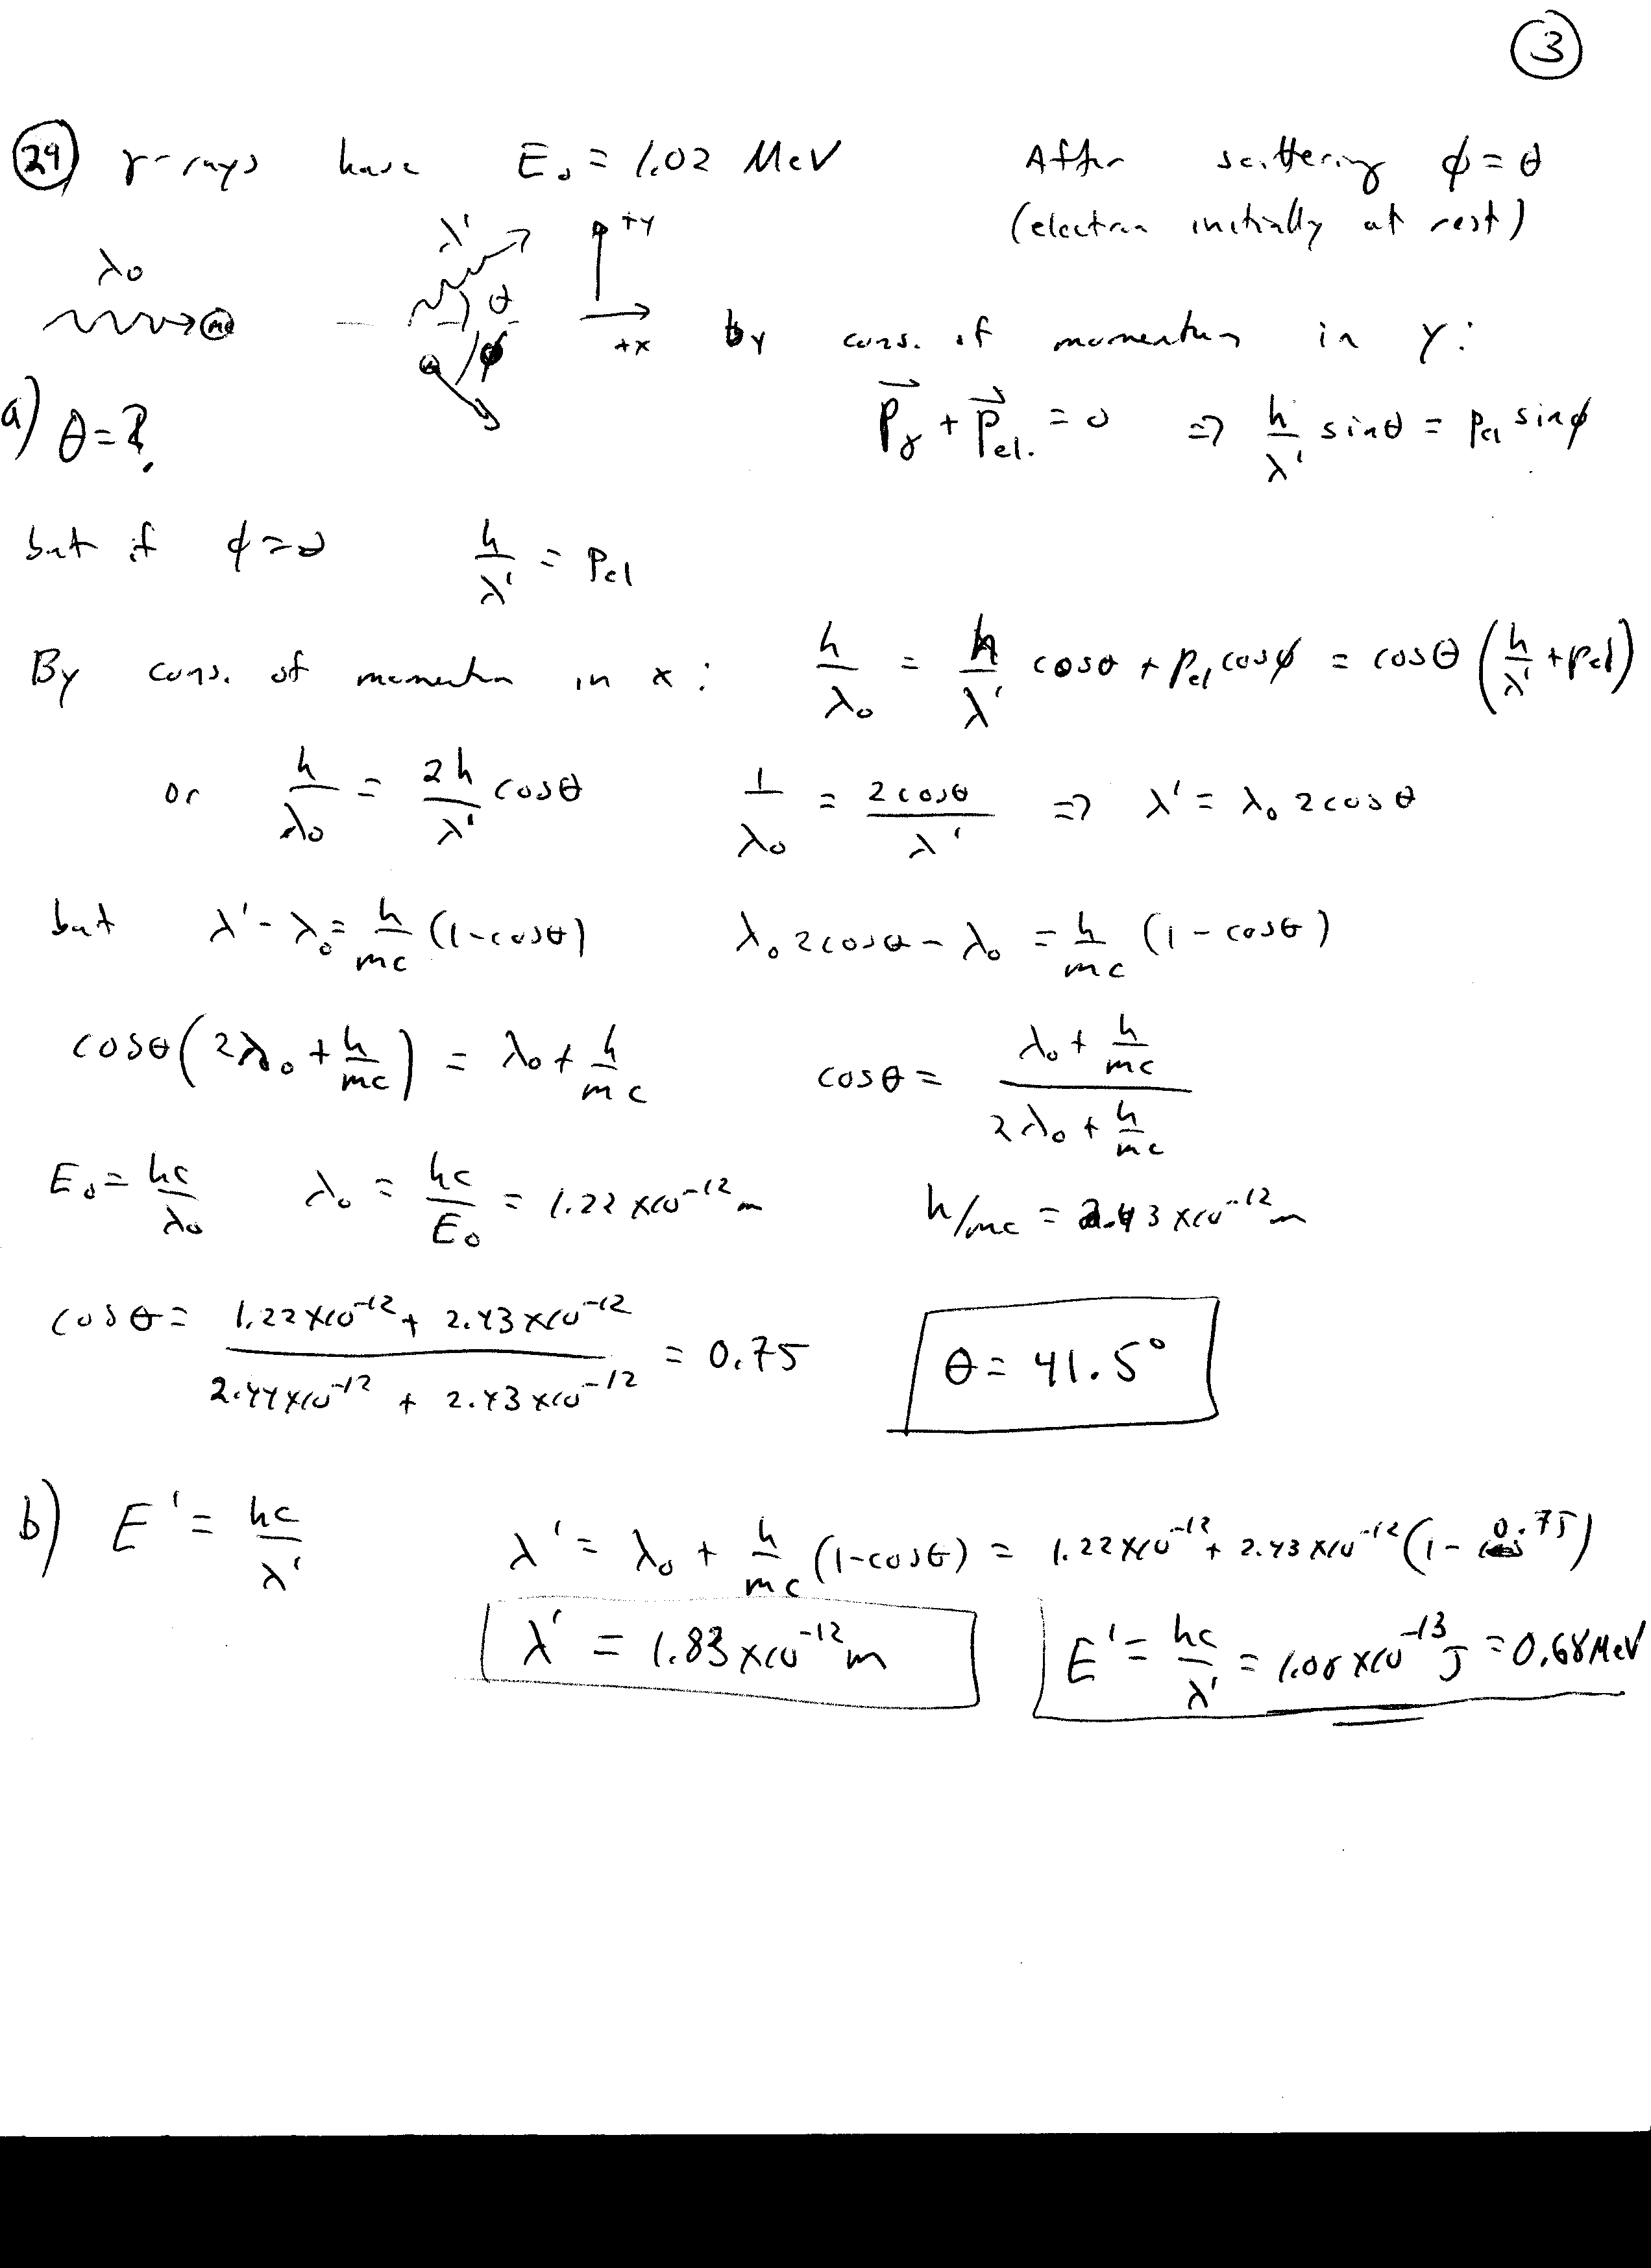 3
29) γ-rays have E₀ = 1.02 MeV After scattering φ = θ
(electron initially at rest)
λ₀ λ' θ φ +y +x
by cons. of momentum in y:
a) θ = ?
P⃗γ + P⃗el. = 0 ⇒ h/λ' sinθ = pel sinφ
but if φ = θ h/λ' = pel
By cons. of momentum in x: h/λ₀ = h/λ' cosθ + pel cosφ = cosθ (h/λ' + pel)
or h/λ₀ = 2h/λ' cosθ 1/λ₀ = 2cosθ/λ' ⇒ λ' = λ₀ 2cosθ
but λ' - λ₀ = h/mc (1-cosθ) λ₀ 2cosθ - λ₀ = h/mc (1 - cosθ)
cosθ(2λ₀ + h/mc) = λ₀ + h/mc cosθ = (λ₀ + h/mc)/(2λ₀ + h/mc)
E₀ = hc/λ₀ λ₀ = hc/E₀ = 1.22 x10⁻¹² m h/mc = 2.43 x10⁻¹² m
cosθ = (1.22x10⁻¹² + 2.43x10⁻¹²)/(2.44x10⁻¹² + 2.43x10⁻¹²) = 0.75 θ = 41.5°
b) E' = hc/λ' λ' = λ₀ + h/mc (1-cosθ) = 1.22x10⁻¹² + 2.43x10⁻¹² (1 - 0.75)
λ' = 1.83x10⁻¹² m E' = hc/λ' = 1.08 x10⁻¹³ J = 0.68 MeV